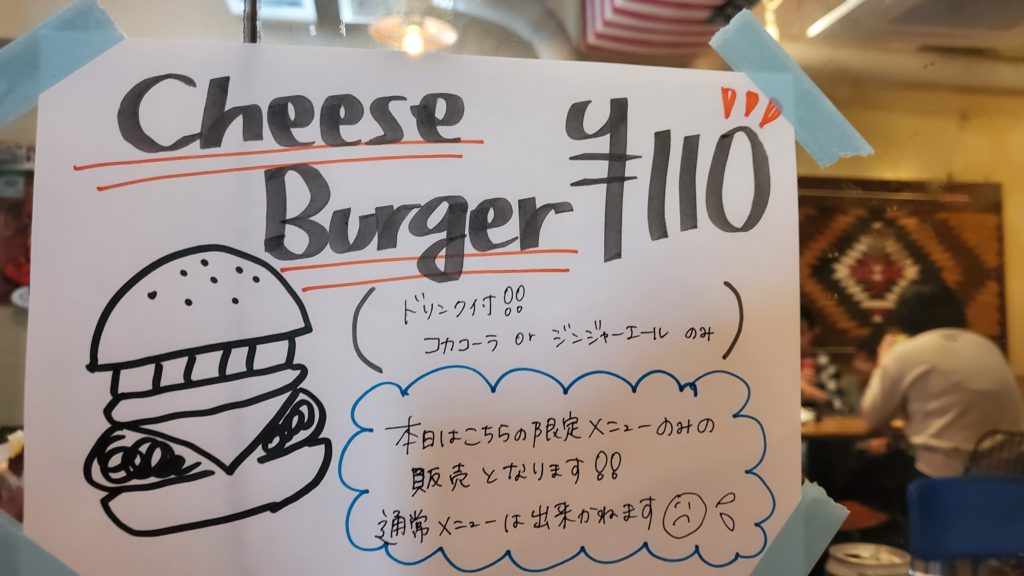 Cheese
Burger ¥110
(ドリンク付!!
コカコーラ or ジンジャーエール のみ)
本日はこちらの限定メニューのみの
販売となります!!
通常メニューは出来かねます